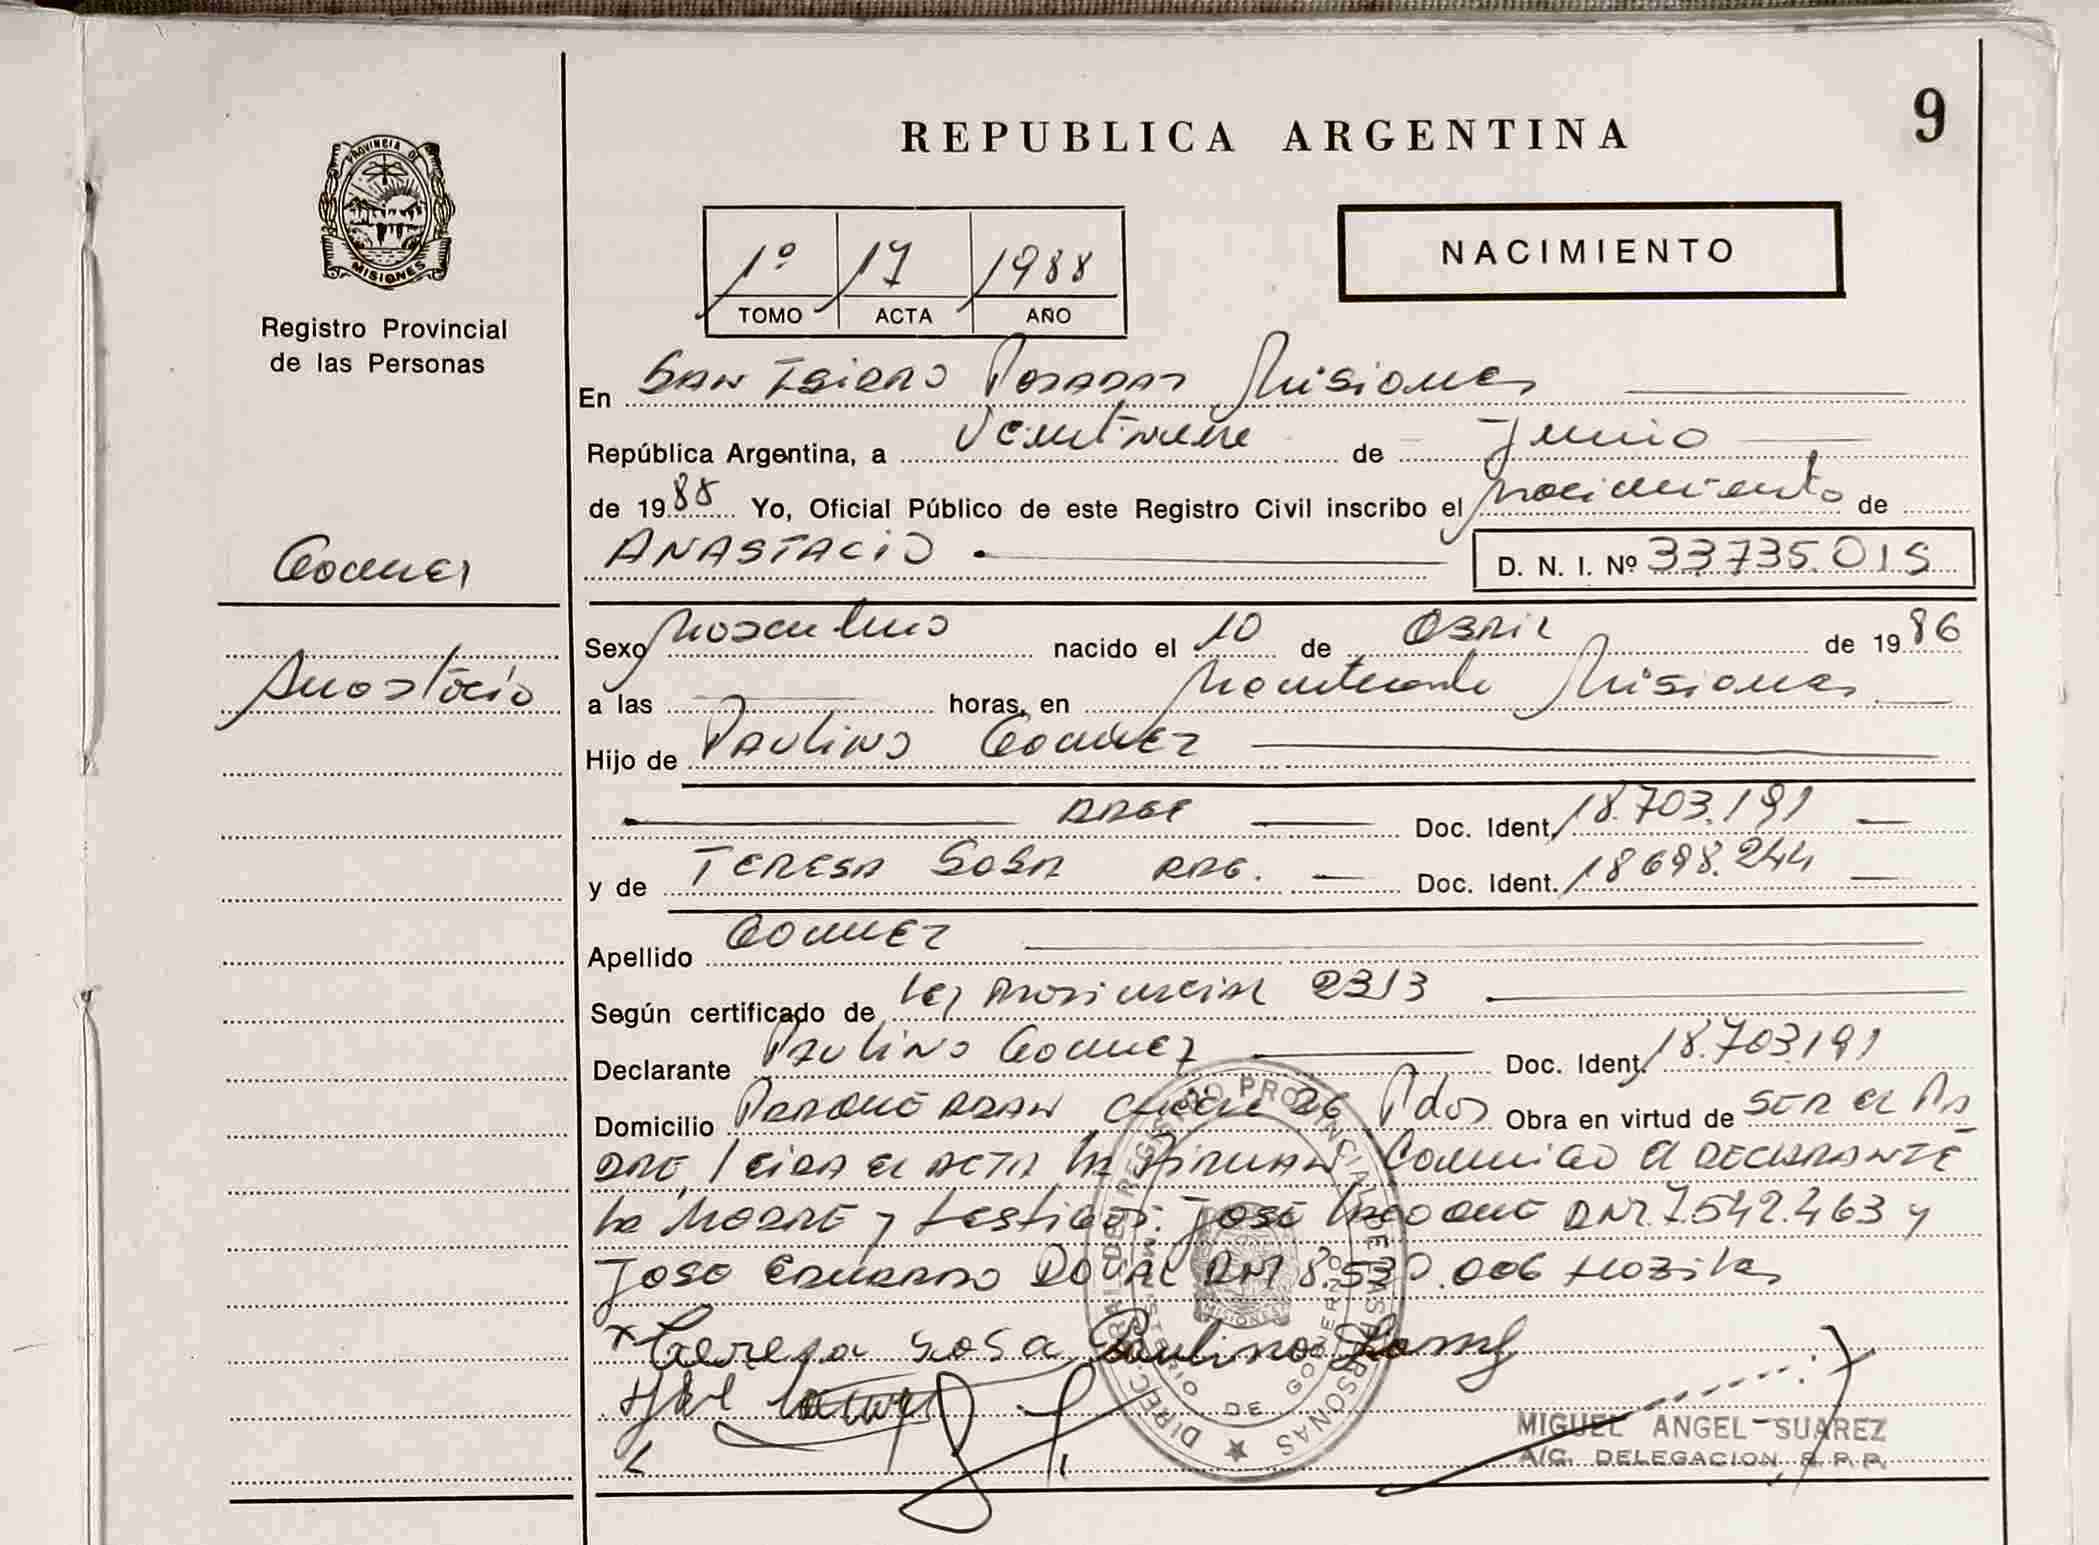 REPUBLICA ARGENTINA
9
PROVINCIA DE
MISIONES
Registro Provincial
de las Personas
1º 17 1988
TOMO ACTA AÑO
NACIMIENTO
En San Isidro Posadas Misiones
República Argentina, a Veintinueve de Junio
de 1988 Yo, Oficial Público de este Registro Civil inscribo el nacimiento de
ANASTACIO D. N. I. Nº 33735.015
Gomez
Anastacio
Sexo Masculino nacido el 10 de Abril de 1986
a las horas, en Montecarlo Misiones
Hijo de Paulino Gomez
ARGE Doc. Ident. 18.703.191
y de TERESA SOSA ARG. Doc. Ident. 18698.244
Apellido Gomez
Según certificado de Ley Provincial 2313
Declarante Paulino Gomez Doc. Ident. 18.703191
Domicilio Parque Adam 26 Pdas Obra en virtud de SER el PA
DRE, leida el acta la Firman Conmigo el DECLARANTE
la Madre y testigos: José DNI. 7.542.463 y
Jose Eduardo DNI 8.530.006
Teresa Sosa Paulino Gomez
DIRECC. GRAL DE REGISTRO PROVINCIAL DE LAS PERSONAS
MINISTERIO DE GOBIERNO
MISIONES
MIGUEL ANGEL SUAREZ
A/C. DELEGACION R. P. P.